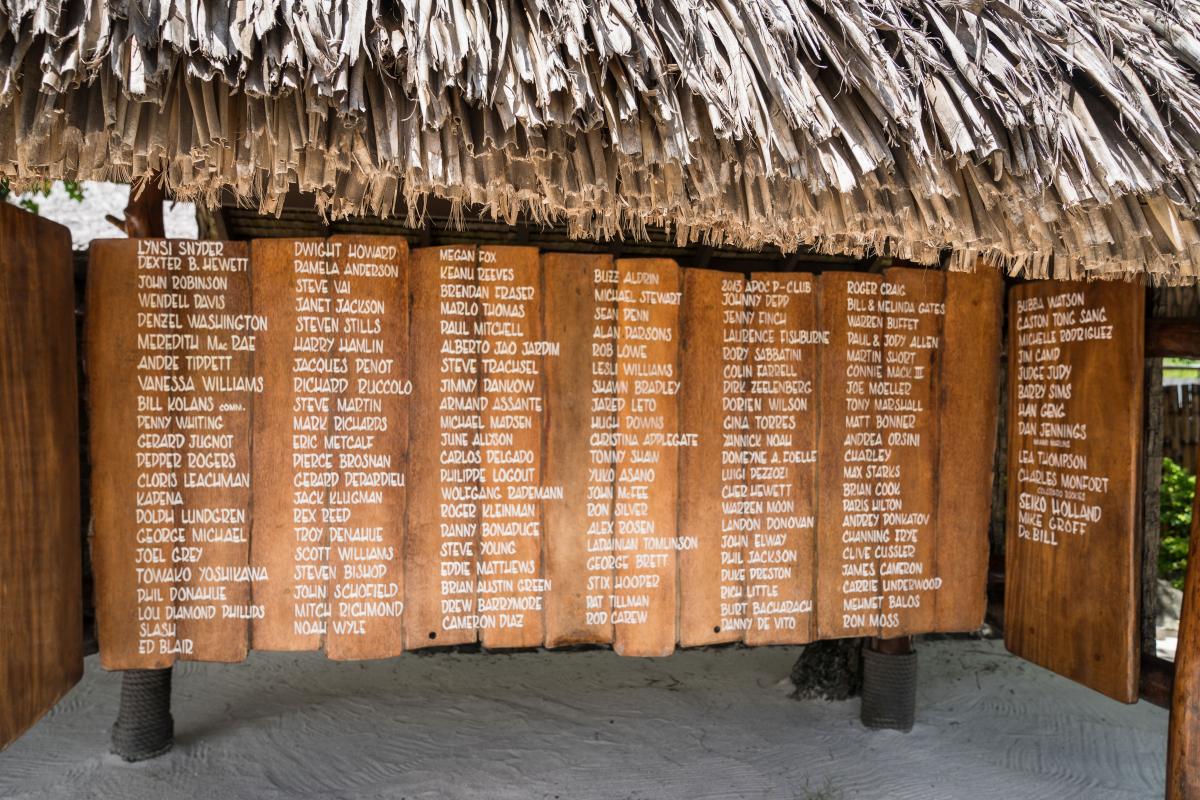 LYNSI SNYDER
DEXTER B. HEWETT
JOHN ROBINSON
WENDELL DAVIS
DENZEL WASHINGTON
MEREDITH Mac RAE
ANDRE TIPPETT
VANESSA WILLIAMS
BILL KOLANS COMM.
PENNY WHITING
GERARD JUGNOT
PEPPER ROGERS
CLORIS LEACHMAN
KAPENA
DOLPH LUNDGREN
GEORGE MICHAEL
JOEL GREY
TOWAKO YOSHIKAWA
PHIL DONAHUE
LOU DIAMOND PHILLIPS
SLASH
ED BLAIR
DWIGHT HOWARD
PAMELA ANDERSON
STEVE VAI
JANET JACKSON
STEVEN STILLS
HARRY HAMLIN
JACQUES PENOT
RICHARD RUCCOLO
STEVE MARTIN
MARK RICHARDS
ERIC METCALF
PIERCE BROSNAN
GERARD DEPARDIEU
JACK KLUGMAN
REX REED
TROY DENAHUE
SCOTT WILLIAMS
STEVEN BISHOP
JOHN SCHOFIELD
MITCH RICHMOND
NOAH WYLE
MEGAN FOX
KEANU REEVES
BRENDAN FRASER
MARLO THOMAS
PAUL MITCHELL
ALBERTO JAO JARDIM
STEVE TRACHSEL
JIMMY PANKOW
ARMAND ASSANTE
MICHAEL MADSEN
JUNE ALLYSON
CARLOS DELGADO
PHILIPPE LOGOUT
WOLFGANG RADEMANN
ROGER KLEINMAN
DANNY BONADUCE
STEVE YOUNG
EDDIE MATTHEWS
BRIAN AUSTIN GREEN
DREW BARRYMORE
CAMERON DIAZ
BUZZ ALDRIN
MICHAEL STEWART
SEAN PENN
ALAN PARSONS
ROB LOWE
LESLI WILLIAMS
SHAWN BRADLEY
JARED LETO
HUGH DOWNS
CHRISTINA APPLEGATE
TOMMY SHAW
YUKO ASANO
JOHN McFEE
RON SILVER
ALEX ROSEN
LADAINIAN TOMLINSON
GEORGE BRETT
STIX HOOPER
PAT TILLMAN
ROD CAREW
2013 APOC P-CLUB
JOHNNY DEPP
JENNY FINCH
LAURENCE FISHBURNE
RORY SABBATINI
COLIN FARRELL
DIRK ZEELENBERG
DORIEN WILSON
GINA TORRES
YANNICK NOAH
DOMEYNE A. FOELLE
LUIGI PEZZOZI
CHER HEWETT
WARREN MOON
LANDON DONOVAN
JOHN ELWAY
PHIL JACKSON
DUKE PRESTON
RICH LITTLE
BURT BACHARACH
DANNY DE VITO
ROGER CRAIG
BILL & MELINDA GATES
WARREN BUFFET
PAUL & JODY ALLEN
MARTIN SHORT
CONNIE MACK III
JOE MOELLER
TONY MARSHALL
MATT BONNER
ANDREA ORSINI
CHARLEY
MAX STARKS
BRIAN COOK
PARIS HILTON
ANDREY PONKATOV
CHANNING FRYE
CLIVE CUSSLER
JAMES CAMERON
CARRIE UNDERWOOD
MEHMET BALOS
RON MOSS
BUBBA WATSON
GASTON TONG SANG
MICHELLE RODRIGUEZ
JIM CAMP
JUDGE JUDY
BARRY SIMS
HAN GENG
DAN JENNINGS
LEA THOMPSON
CHARLES MONFORT
COLORADO ROCKIES
SEIKO HOLLAND
MIKE GROFF
Dr. BILL